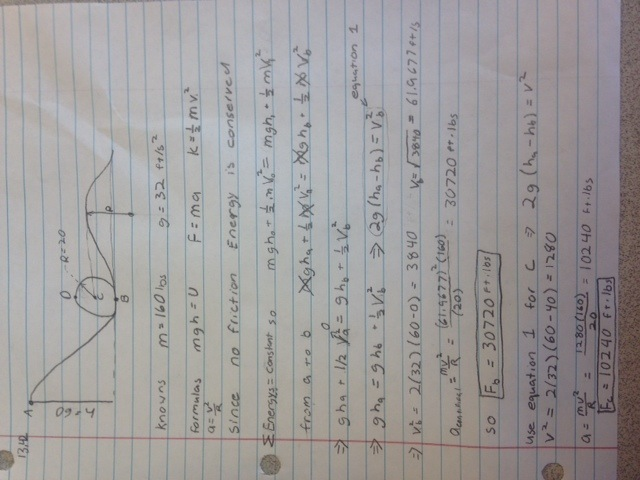 13.42
A
h=60
D
R=20
C
B
P
knowns m=160lbs g=32 ft/s²
formulas mgh=U F=ma k=½mv²
a=v²/R
since no friction Energy is conserved
Σ Energys = constant so mgh₀+½mV₀² = mgh₁+½mV₁²
from a to b mgha+½mVa² = mghb+½mVb²
⇒ gha+1/2Va² = ghb+½Vb²
0
⇒ gha = ghb+½Vb² ⇒ (2g(ha-hb)=Vb² equation 1
⇒ Vb² = 2(32)(60-0) = 3840 Vb=√3840 = 61.9677 ft/s
= mv²/R = (61.9677)²(160)/(20) = 30720 ft·lbs
so Fb = 30720 ft·lbs
use equation 1 for C ⇒ 2g(ha-hb)=V²
V² = 2(32)(60-40)=1280
a = mv²/R = 1280(160)/20 = 10240 ft·lbs
Fc = 10240 ft·lbs